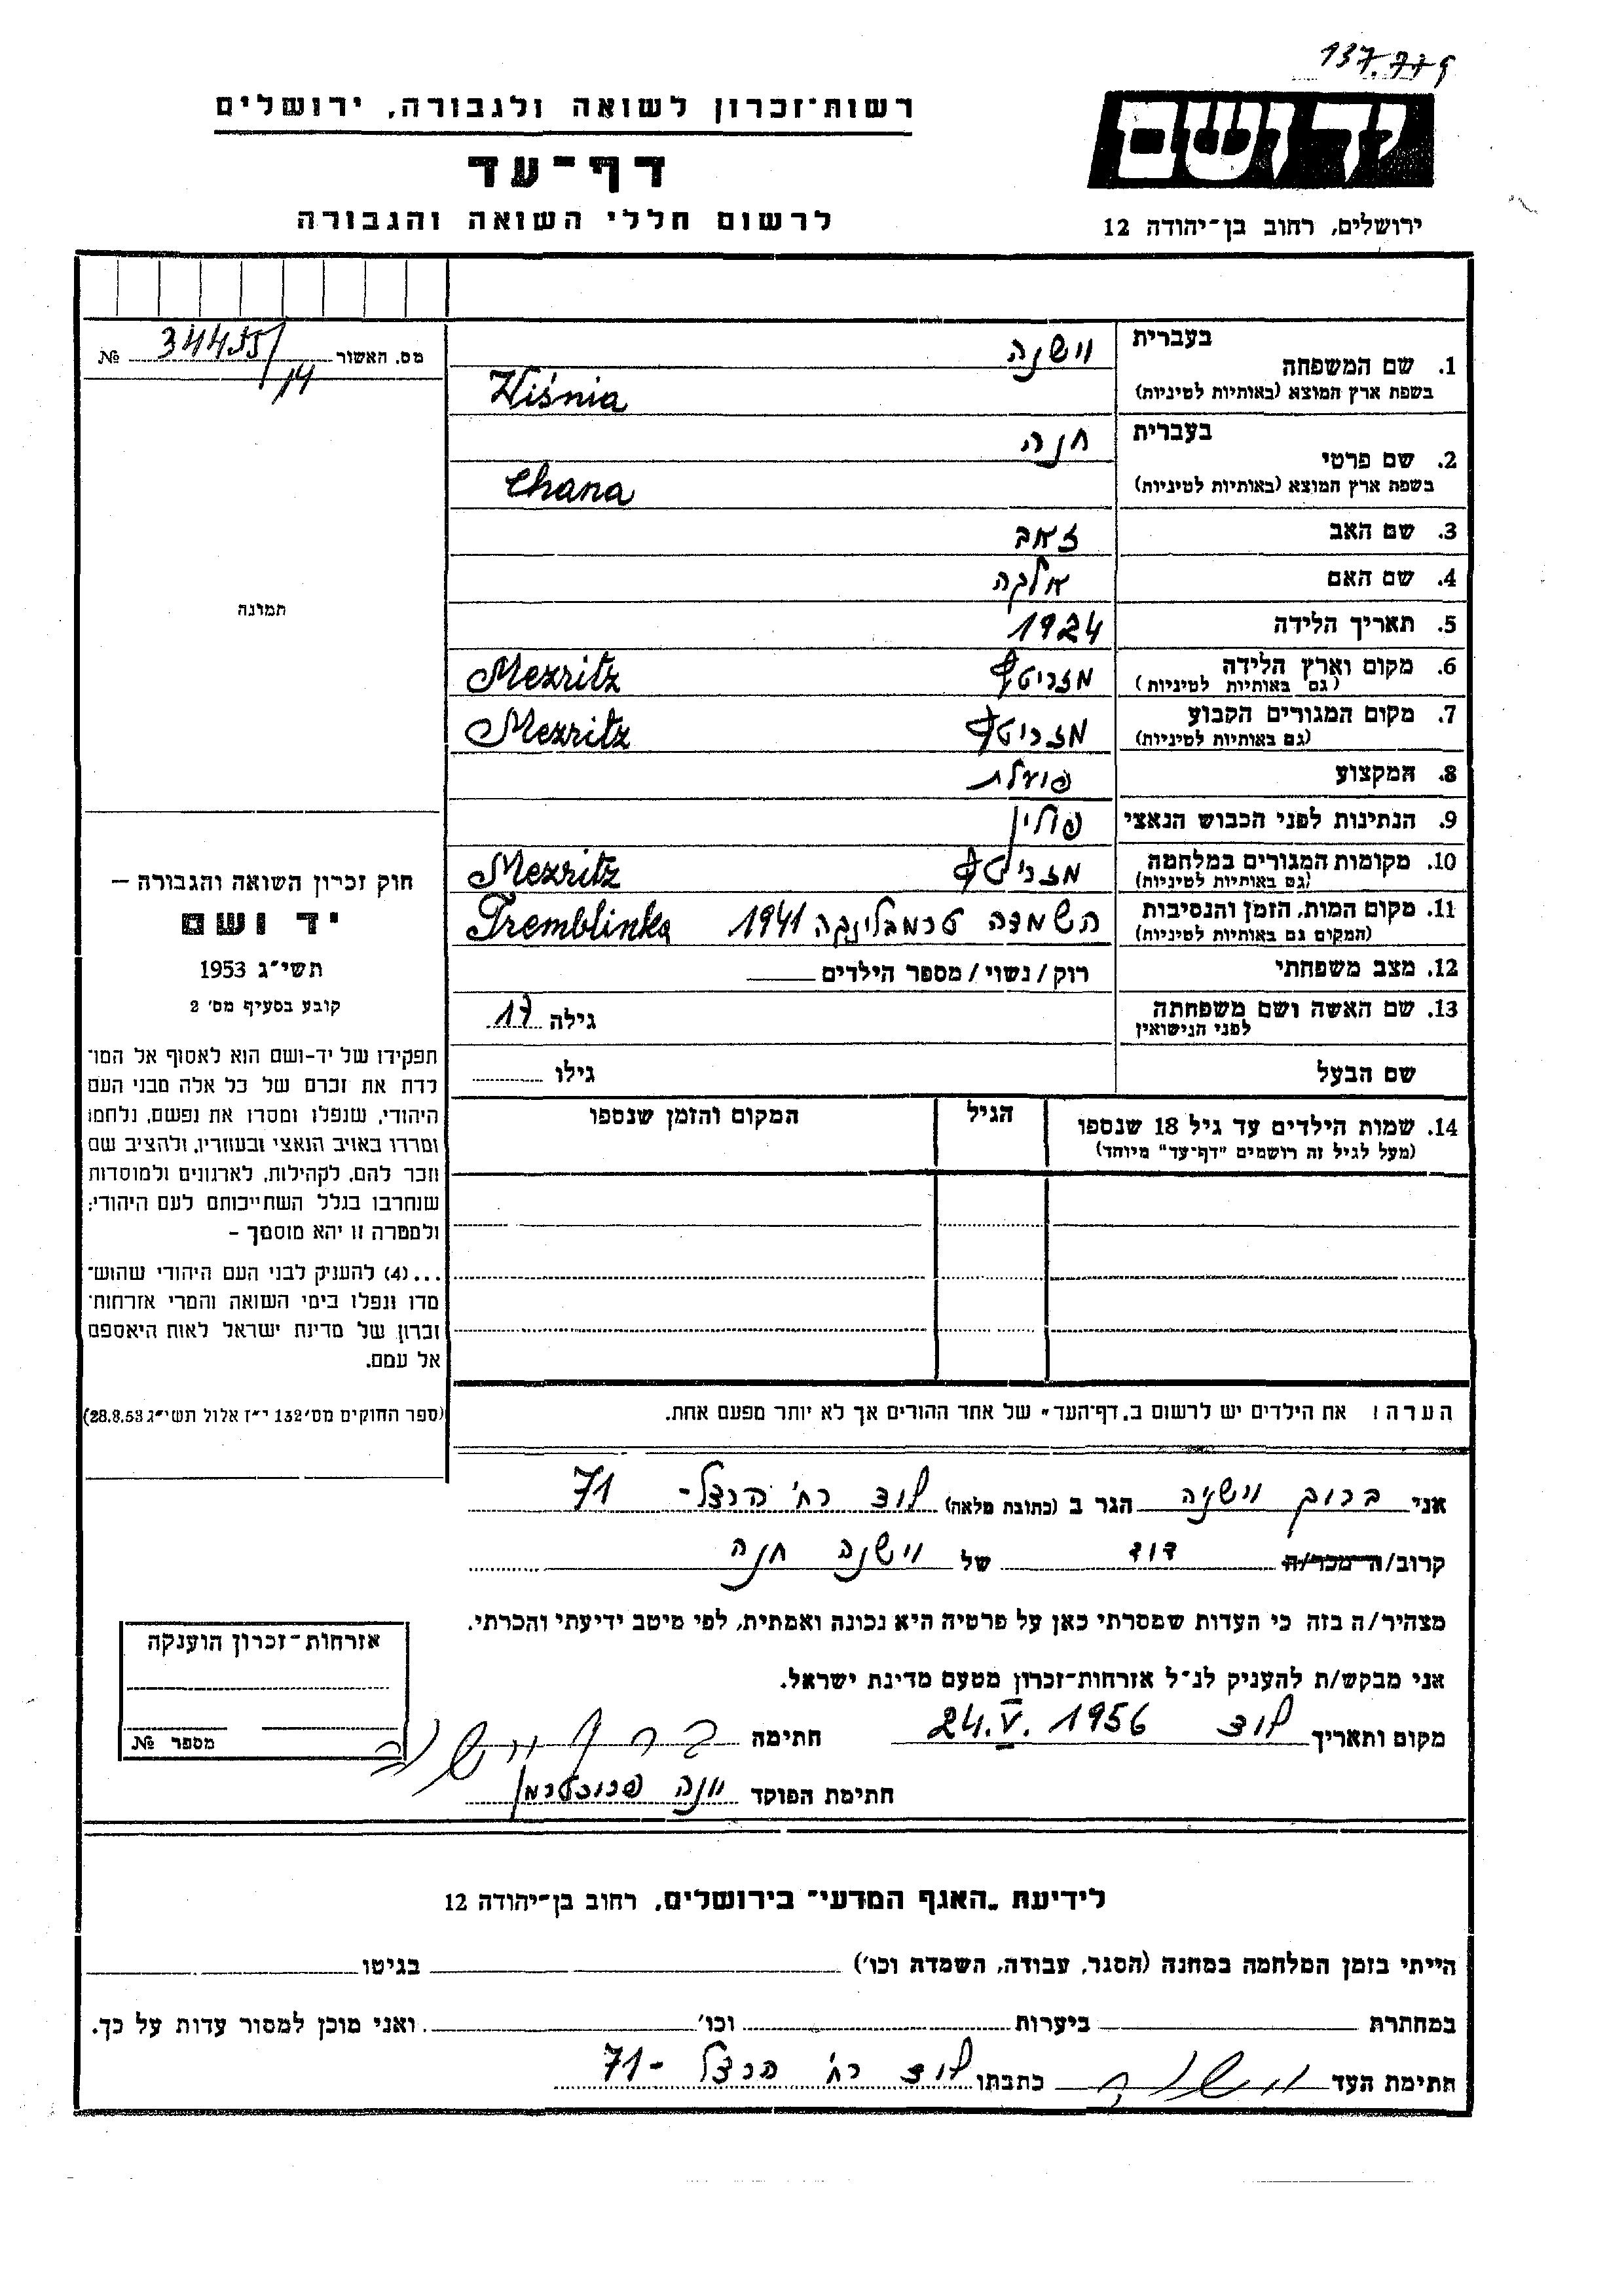 137.779
רשות־זכרון לשואה ולגבורה, ירושלים
יד ושם
דף־עד
לרשום חללי השואה והגבורה
ירושלים, רחוב בן־יהודה 12
מס. האשור 34455/14 №
תמונה
בעברית
1. שם המשפחה וישנה
בשפת ארץ המוצא (באותיות לטיניות) Wiśnia
בעברית
2. שם פרטי חנה
בשפת ארץ המוצא (באותיות לטיניות) Chana
3. שם האב זאב
4. שם האם אלקה
5. תאריך הלידה 1924
6. מקום וארץ הלידה מזריטץ Mezritz
(גם באותיות לטיניות)
7. מקום המגורים הקבוע מזריטץ Mezritz
(גם באותיות לטיניות)
8. המקצוע פועלת
9. הנתינות לפני הכבוש הנאצי פולין
10. מקומות המגורים במלחמה מזריטץ Mezritz
(גם באותיות לטיניות)
11. מקום המות, הזמן והנסיבות השמדה טרמבלינקה 1941 Tremblinka
(המקום גם באותיות לטיניות)
12. מצב משפחתי רוק/נשוי/מספר הילדים
13. שם האשה ושם משפחתה גילה 17
לפני הנישואין
שם הבעל גילו
14. שמות הילדים עד גיל 18 שנספו הגיל המקום והזמן שנספו
(מעל לגיל זה רושמים "דף־עד" מיוחד)
הערה: את הילדים יש לרשום ב„דף־העד" של אחד ההורים אך לא יותר מפעם אחת.
חוק זכרון השואה והגבורה —
יד ושם
תשי"ג 1953
קובע בסעיף מס' 2
תפקידו של יד-ושם הוא לאסוף אל המו־
לדת את זכרם של כל אלה מבני העם
היהודי, שנפלו ומסרו את נפשם, נלחמו
ומרדו באויב הנאצי ובעוזריו, ולהציב שם
וזכר להם, לקהילות, לארגונים ולמוסדות
שנחרבו בגלל השתייכותם לעם היהודי;
ולמטרה זו יהא מוסמך –
...(4) להעניק לבני העם היהודי שהוש־
מדו ונפלו בימי השואה והמרי אזרחות־
זכרון של מדינת ישראל לאות היאספם
אל עמם.
(ספר החוקים מס' 132 י"ז אלול תשי"ג 28.8.53)
אני ברוך וישניה הגר ב (כתובת מלאה) לוד רח' הרצל- 71
קרוב/ה מכר/ה דוד של וישנה חנה
מצהיר/ה בזה כי העדות שמסרתי כאן על פרטיה היא נכונה ואמתית, לפי מיטב ידיעתי והכרתי.
אני מבקש/ת להעניק לנ"ל אזרחות־זכרון מטעם מדינת ישראל.
מקום ותאריך לוד 24.V.1956 חתימה
חתימת הפוקד יונה
אזרחות־זכרון הוענקה
מספר №
לידיעת „האגף המדעי" בירושלים, רחוב בן־יהודה 12
הייתי בזמן המלחמה במחנה (הסגר, עבודה, השמדה וכו') בגיטו
במחתרת ביערות וכו' ואני מוכן למסור עדות על כך.
חתימת העד כתבתו לוד רח' הרצל - 71